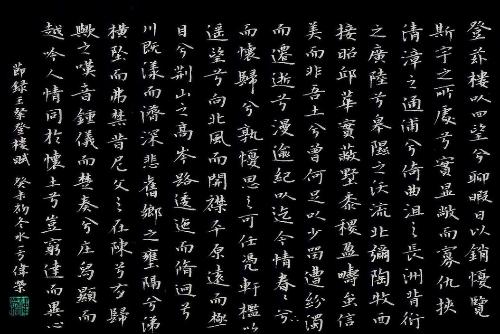 登茲樓以四望兮聊暇日以銷憂覽
斯宇之所處兮實顯敞而寡仇挾
清漳之通浦兮倚曲沮之長洲背衍
之廣陸兮皋隰之沃流北彌陶牧西
接昭邱華實蔽墅黍稷盈疇雖信
美而非吾土兮曾何足以少留遭紛濁
而遷逝兮漫逾紀以迄今情眷眷
而懷歸兮孰憂思之可任憑軒檻以
遙望兮向北風而開襟平原遠而極
目兮荊山之高岑路逶迤而脩迥兮
川既漾而濟深悲舊鄉之壅隔兮涕
橫墜而弗禁昔尼父之在陳兮有歸
歟之嘆音鍾儀而楚奏兮庄舄顯而
越吟人情同於懷土兮豈窮達而異心
節錄王粲登樓賦 癸未初冬